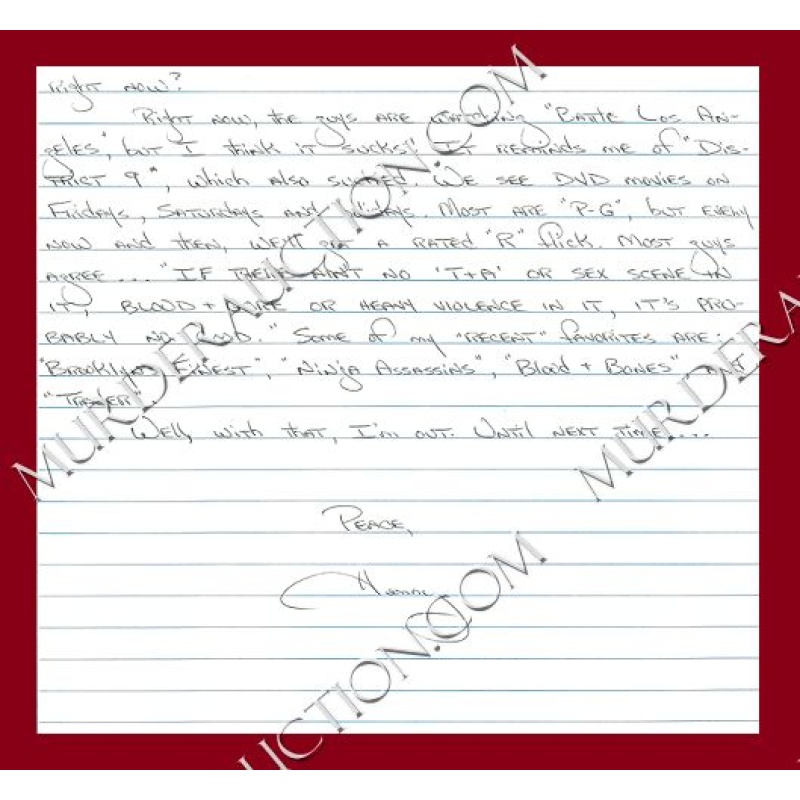 right now?
Right now, the guys are watching "Battle Los An-
geles", but I think it sucks! It reminds me of "Dis-
trict 9", which also sucked. We see DVD movies on
Fridays, Saturdays and Sundays. Most are "P-G", but every
now and then, we'll get a rated "R" flick. Most guys
agree... "If there ain't no 'T+A' or sex scene in
it, blood + gore or heavy violence in it, it's pro-
bably no good." Some of my "recent" favorites are:
"Brooklyn's Finest", "Ninja Assassins", "Blood + Bones",
Well, with that, I'm out. Until next time...
Peace,
MURDERAUCTION.COM
MURDERA
UCTION.COM